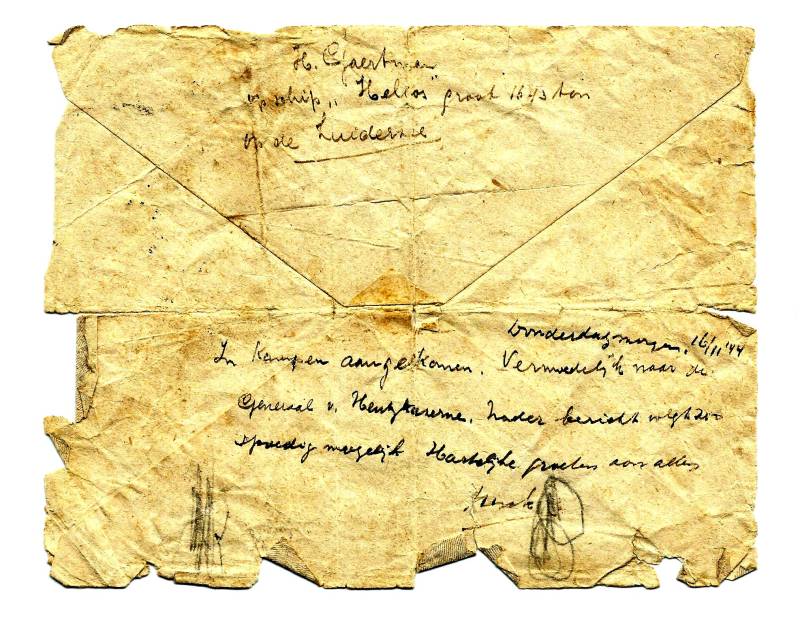 H. Gaertman
op schip „Helios" groot 1643 ton
op de Zuiderzee
Donderdagmorgen, 16/11 '44
In Kampen aangekomen. Vermoedelijk naar de
Generaal v. Heutszkazerne. Nader bericht volgt zoo
spoedig mogelijk Hartelijke groeten aan allen